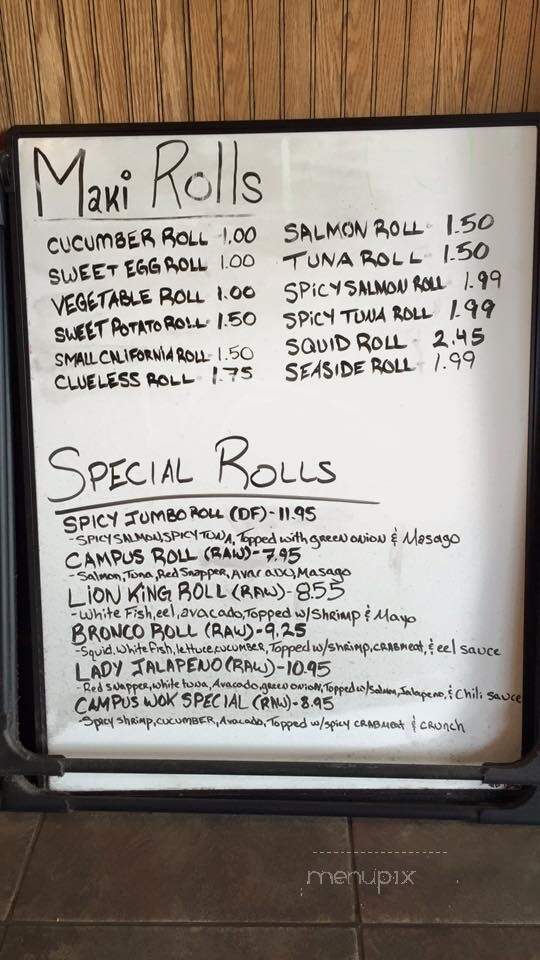 Maki Rolls
CUCUMBER ROLL 1.00
SWEET EGG ROLL 1.00
VEGETABLE ROLL 1.00
SWEET POTATO ROLL - 1.50
SMALL CALIFORNIA ROLL - 1.50
CLUELESS ROLL - 1.75
SALMON ROLL - 1.50
TUNA ROLL - 1.50
SPICY SALMON ROLL 1.99
SPICY TUNA ROLL 1.99
SQUID ROLL - 2.45
SEASIDE ROLL 1.99
SPECIAL ROLLS
SPICY JUMBO ROLL (DF) - 11.95
- SPICY SALMON, SPICY TUNA, Topped with green onion & Masago
CAMPUS ROLL (RAW) - 7.95
- Salmon, Tuna, Red Snapper, Avacado, Masago
LION KING ROLL (RAW) - 8.55
- White Fish, eel, avocado, Topped w/ Shrimp & Mayo
BRONCO ROLL (RAW) - 9.25
- Squid, White Fish, lettuce, cucumber, Topped w/ shrimp, crabmeat, & eel sauce
LADY JALAPENO (RAW) - 10.95
- Red snapper, white tuna, Avacado, green onion, Topped w/ Salmon, Jalapeno, & Chili sauce
CAMPUS WOK SPECIAL (RAW) - 8.95
- Spicy shrimp, cucumber, Avocado, Topped w/ spicy crabmeat & crunch
menupix